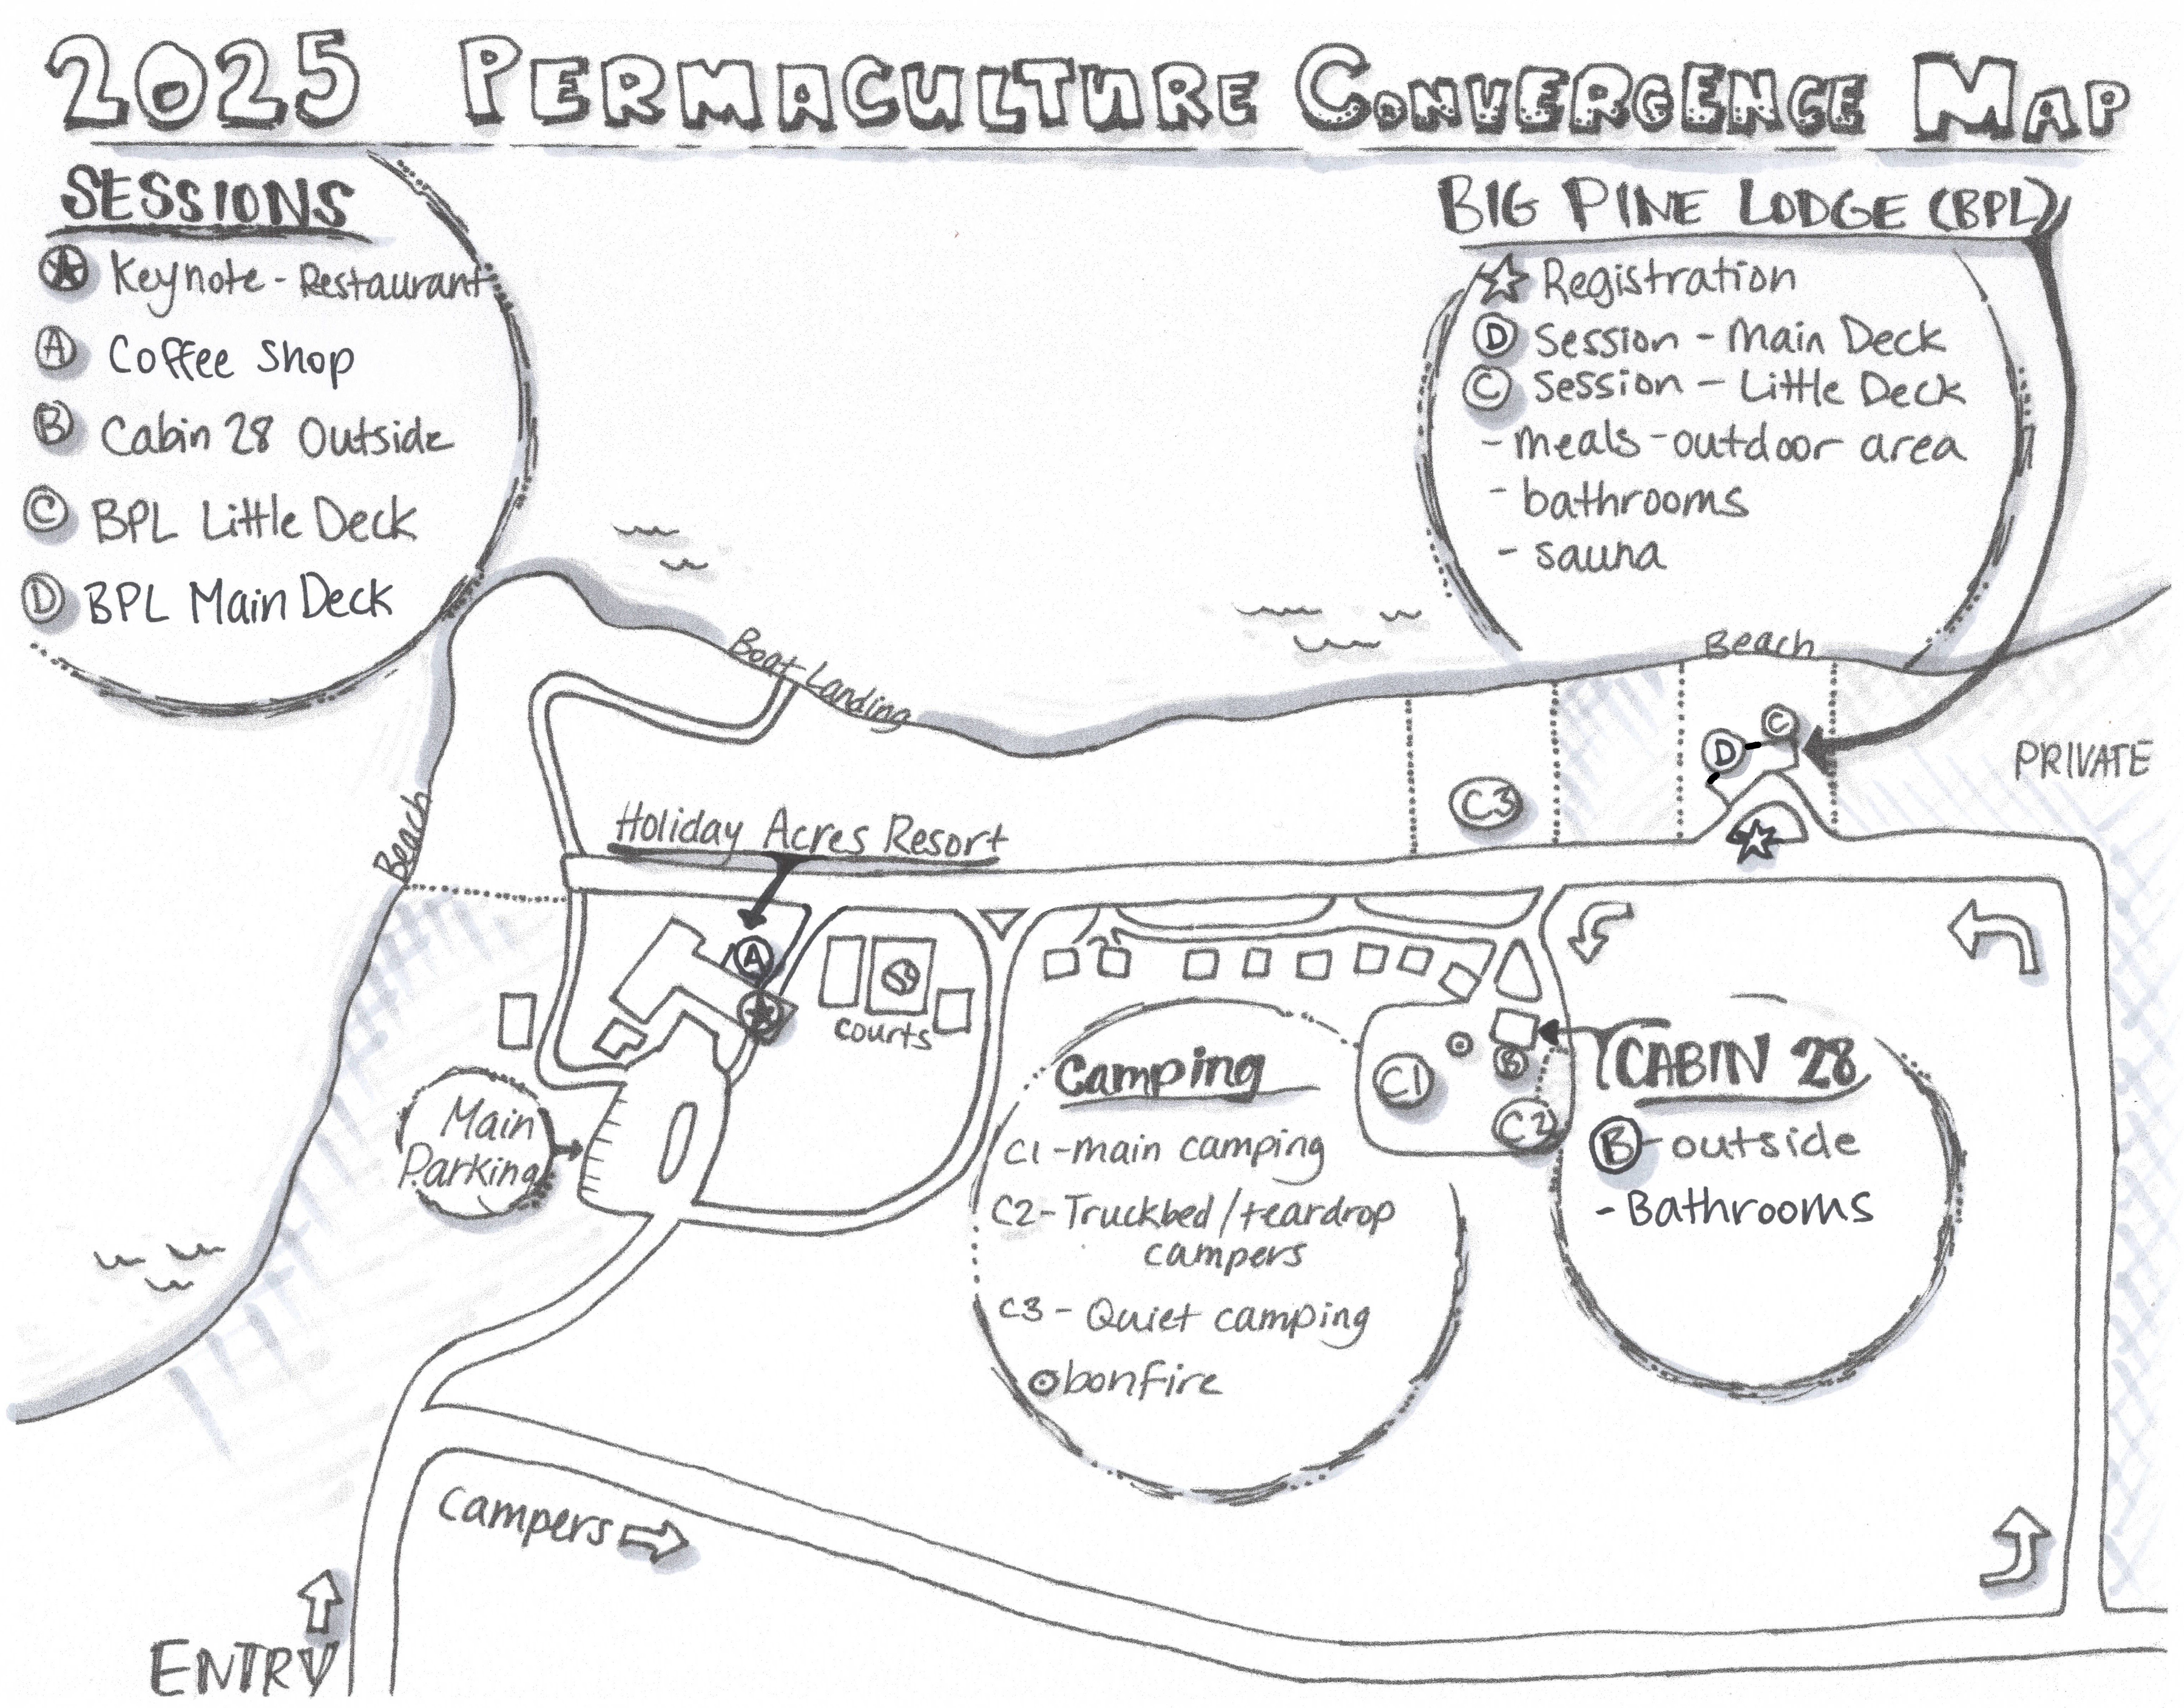 2025 PERMACULTURE CONVERGENCE MAP
SESSIONS
Keynote - Restaurant
A Coffee Shop
B Cabin 28 Outside
C BPL Little Deck
D BPL Main Deck
BIG PINE LODGE (BPL)
Registration
D Session - Main Deck
C Session - Little Deck
- meals - outdoor area
- bathrooms
- sauna
Boat Landing
Beach
Beach
PRIVATE
C
D
C3
Holiday Acres Resort
A
courts
Main
Parking
Camping
C1 - main camping
C2 - Truckbed / teardrop
campers
C3 - Quiet camping
bonfire
C1
B
C2
CABIN 28
B - outside
- Bathrooms
Campers
ENTRY